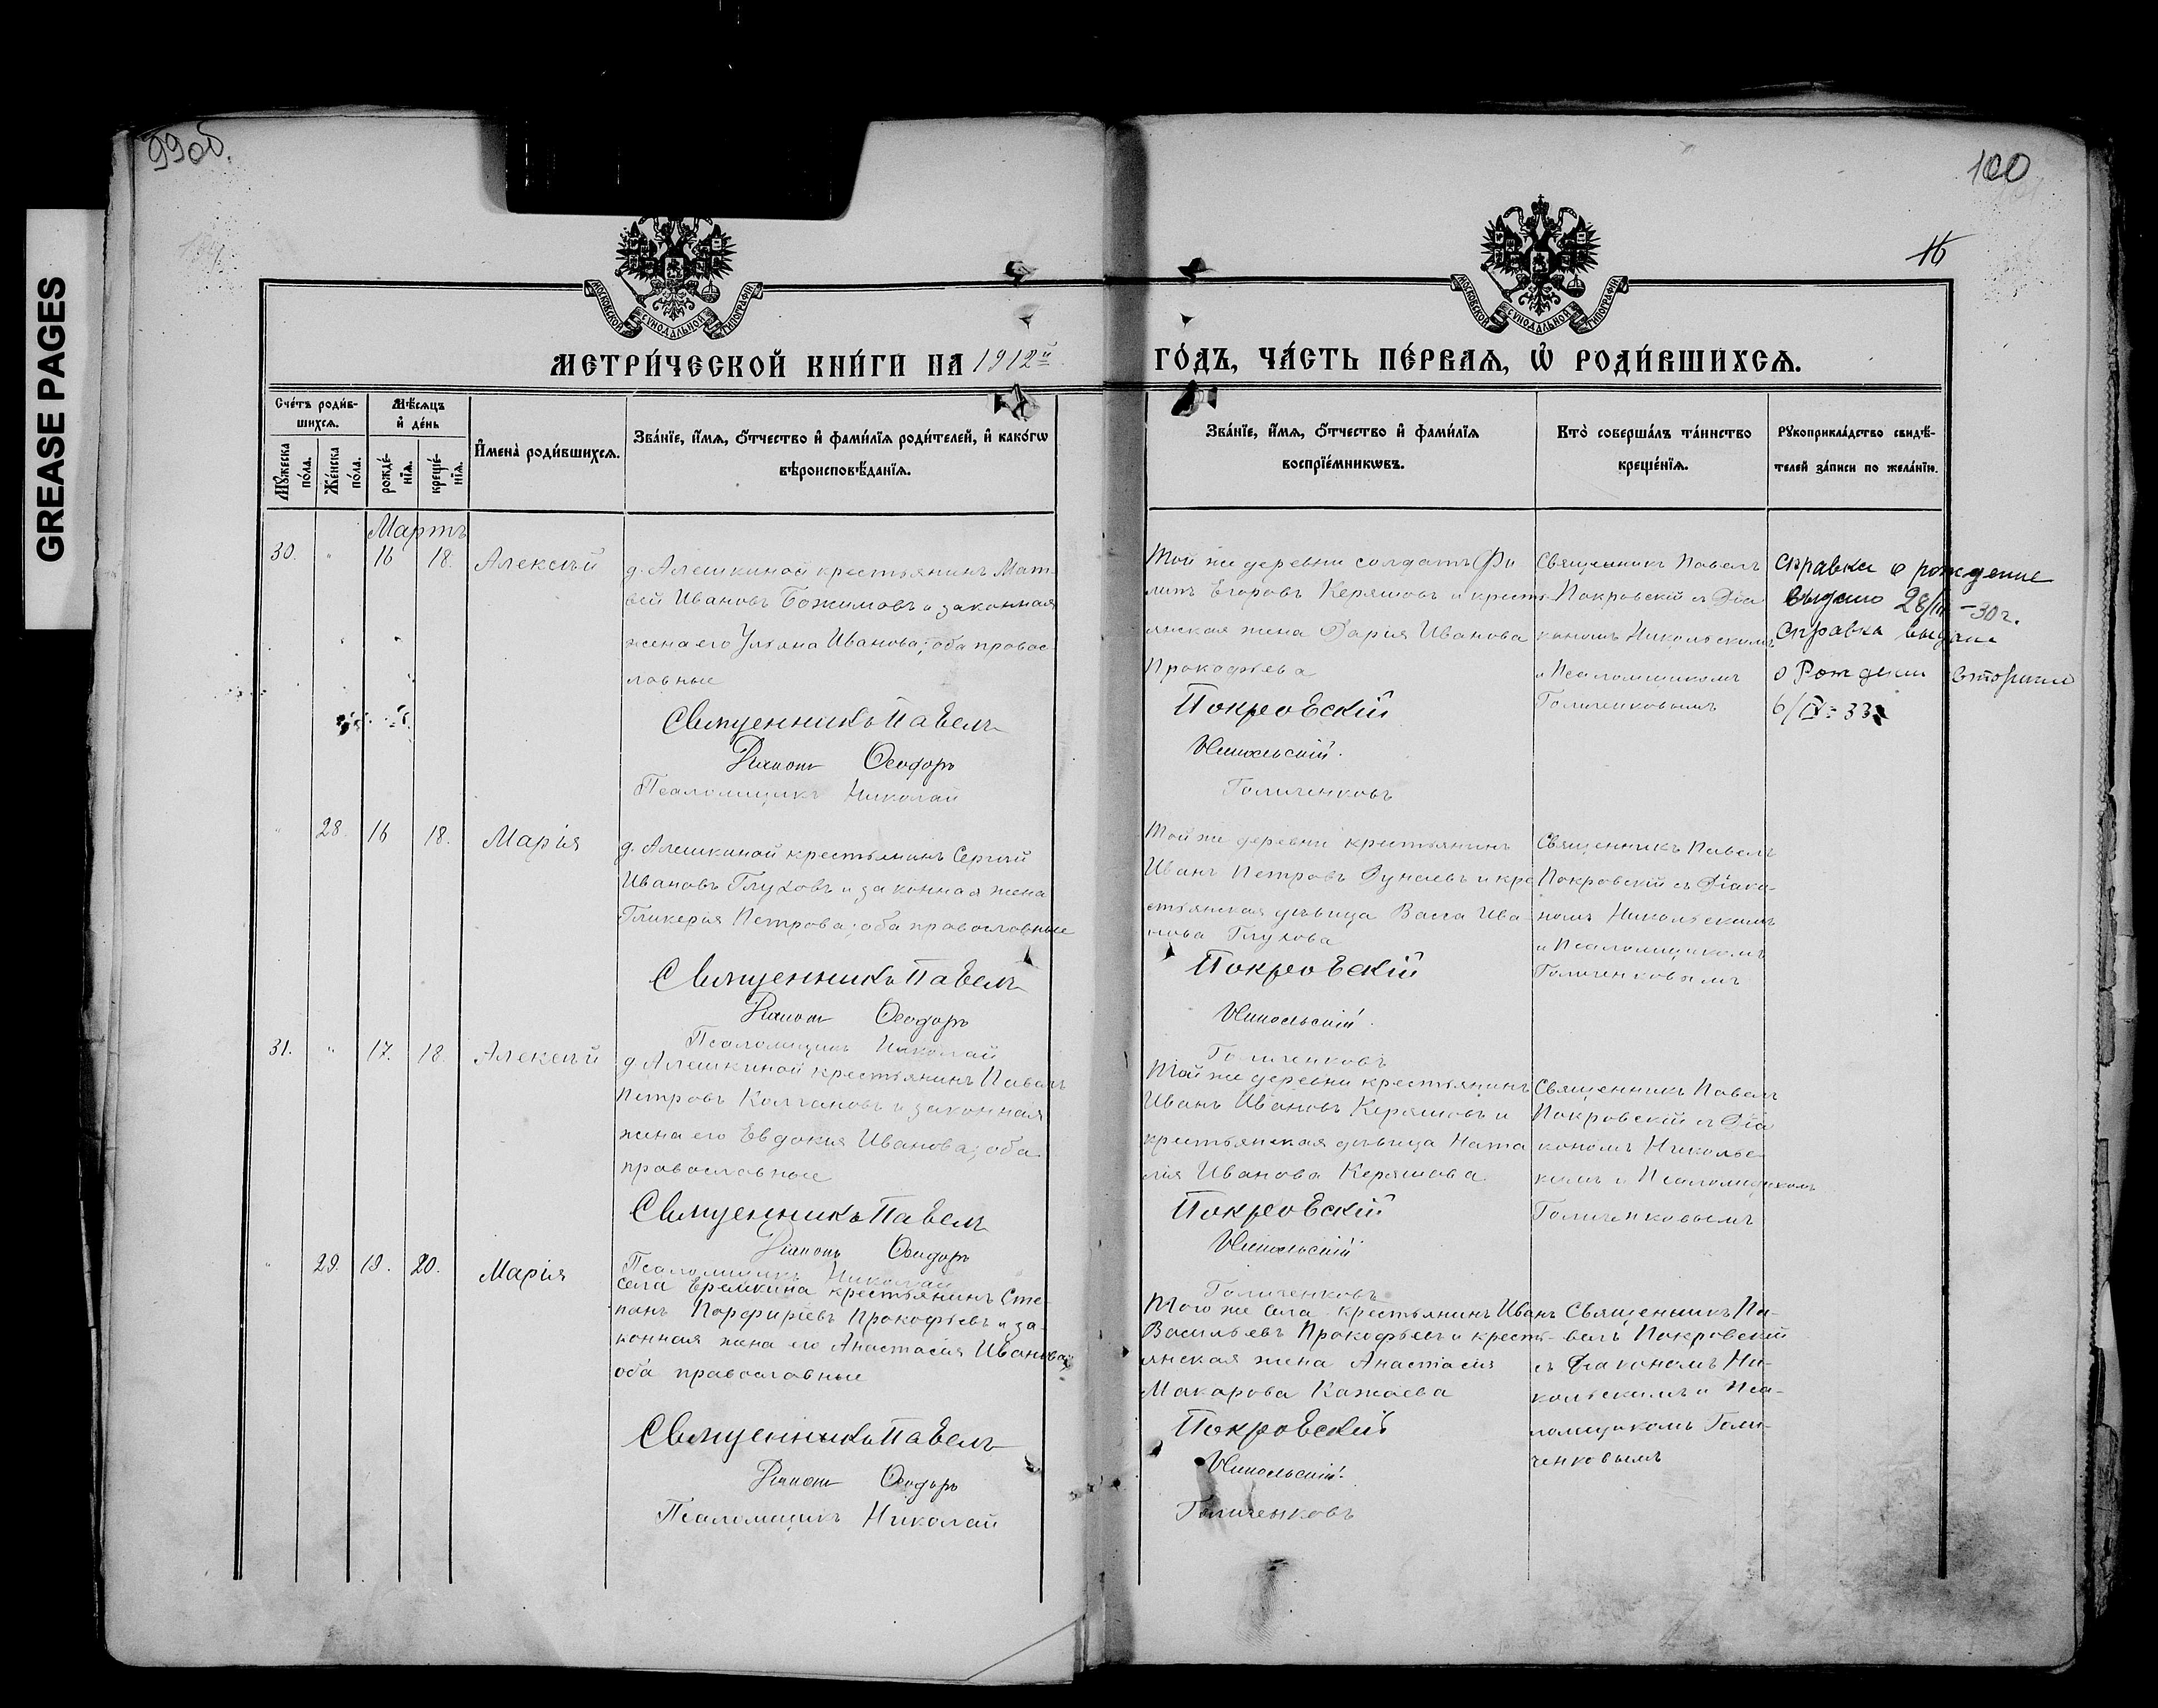 GREASE PAGES
99об.
100
16
МОСКОВСКОЙ СѴНОДАЛЬНОЙ ТИПОГРАФІИ
МОСКОВСКОЙ СѴНОДАЛЬНОЙ ТИПОГРАФІИ
МЕТРИ́ЧЕСКОЙ КНИ́ГИ НА 1912й
ГО́ДЪ, ЧА́СТЬ ПЕ́РВАѦ, Ѡ҆ РОДИ́ВШИХСѦ.
Сче́тъ роди́в-
шихсѧ.
Мꙋ́жеска по́ла.
Же́нска по́ла.
Мѣ́сѧцъ
и҆ де́нь
рожде́-нїѧ.
креще́-нїѧ.
И҆мена̀ роди́вшихсѧ.
Зва́нїе, и҆́мѧ, ѻ҆́тчество и҆ фами́лїѧ роди́телей, и҆ како́гѡ
вѣроисповѣ́данїѧ.
Зва́нїе, и҆́мѧ, ѻ҆́тчество и҆ фами́лїѧ
воспрїе́мникѡвъ.
Кто̀ соверша́лъ та́инство
креще́нїѧ.
Рꙋкоприкла́дство свидѣ́-
телей за́писи по жела́нїю.
Мартъ
30. " 16 18. Алексѣй
д. Алешкиной крестьянинъ Мат-
вей Ивановъ Божимовъ и законная
жена его Ульяна Иванова; оба правос-
лавные
Священникъ Павелъ
Діаконъ Ѳеодоръ
Псаломщикъ Николай
Той же деревни солдатъ Фи
липъ Егоровъ Керяшовъ и кресть-
янская жена Дарія Иванова
Прокофьева
Покровскій
Никольскій.
Голиченковъ
Священникъ Павелъ
Покровскій съ Діа
кономъ Никольскимъ
и Псаломщикомъ
Голиченковымъ
Справка о рождение
выдано 28/III-30г.
Справка выдана
о Рождении вторично
6/IV-33
" 28. 16 18. Марія
д. Алешкиной крестьянинъ Сергій
Ивановъ Глуховъ и законная жена
Гликерія Петрова; оба православные
Священникъ Павелъ
Діаконъ Ѳеодоръ
Псаломщикъ Николай
Той же деревни крестьянинъ
Иванъ Петровъ Дунаевъ и кре
стьянская дѣвица Васса Ива
нова Глухова
Покровскій
Никольскій.
Голиченковъ
Священникъ Павелъ
Покровскій съ Діако-
номъ Никольскимъ
и Псаломщикомъ
Голиченковымъ
31. " 17. 18. Алексѣй
д. Алешкиной крестьянинъ Павелъ
Петровъ Колчановъ и законная
жена его Евдокия Иванова; оба
православные
Священникъ Павелъ
Діаконъ Ѳеодоръ
Псаломщикъ Николай
Той же деревни крестьянинъ
Иванъ Ивановъ Керяшовъ и
крестьянская дѣвица Ната
лія Иванова Керяшова
Покровскій
Никольскій
Голиченковъ
Священникъ Павелъ
Покровскій съ Діа
кономъ Никольс-
кимъ и Псаломщикомъ
Голиченковымъ
" 29. 19. 20. Марія
Села Еремкина крестьянинъ Сте-
панъ Порфиріевъ Прокофьевъ и за-
конная жена его Анастасія Иванова;
оба православные
Священникъ Павелъ
Діаконъ Ѳеодоръ
Псаломщикъ Николай
Того же Села крестьянинъ Иванъ
Васильевъ Прокофьевъ и кресть-
янская жена Анастасія
Макарова Кажаева
Покровскій
Никольскій.
Голиченковъ
Священникъ Па-
велъ Покровскій
съ Діакономъ Ни-
кольскимъ и Пса-
ломщикомъ Голи-
ченковымъ